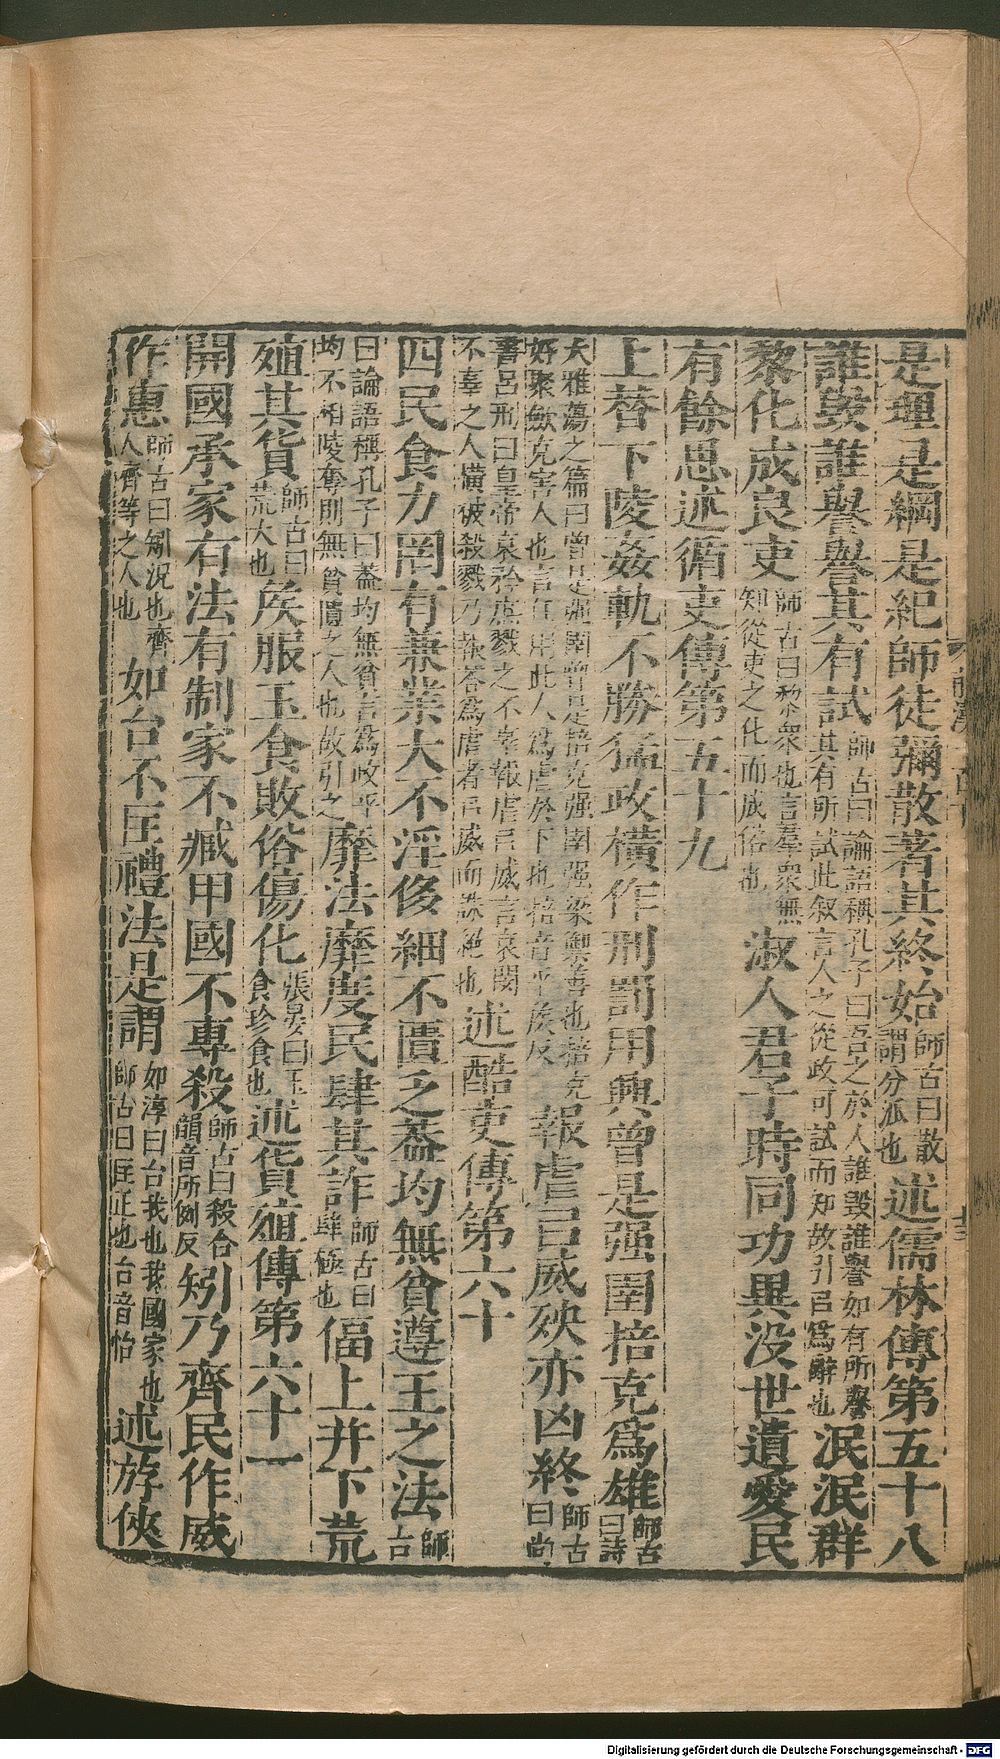 是理是綱是紀師徒彌散著其終始師古曰散謂分派也述儒林傳第五十八
誰毀誰譽譽其有試師古曰論語稱孔子曰吾之於人誰毀誰譽如有所譽其有所試此叙言人之從政可試而知故引㠯爲辭也泯泯群
黎化成良吏師古曰黎衆也言羣衆無知從吏之化而成俗也淑人君子時同功異没世遺愛民
有餘思述循吏傳第五十九
上替下陵姦軌不勝猛政橫作刑罰用興曾是强圉掊克爲雄師古曰詩
大雅蕩之篇曰曾是彊圉曾是掊克强圉强梁禦善也掊克好聚斂克害人也言任用此人爲虐於下也掊音平侯反報虐㠯威殃亦凶終師古曰尚
書呂刑曰皇帝哀矜庶戮之不辜報虐㠯威言哀閔不辜之人橫被殺戮乃報答爲虐者㠯威而誅絕也述酷吏傳第六十
四民食力罔有兼業大不淫侈細不匱乏葢均無貧遵王之法師古
曰論語稱孔子曰葢均無貧言爲政平均不相陵奪則無貧匱之人也故引之靡法靡度民肆其詐師古曰肆極也偪上并下荒
殖其貨師古曰荒大也侯服玉食敗俗傷化張晏曰玉食珍食也述貨殖傳第六十一
開國承家有法有制家不臧甲國不專殺師古曰殺合韻音所例反矧乃齊民作威
作惠師古曰矧況也齊人齊等之人也如台不匡禮法是謂如淳曰台我也我國家也師古曰匡正也台音怡述游俠